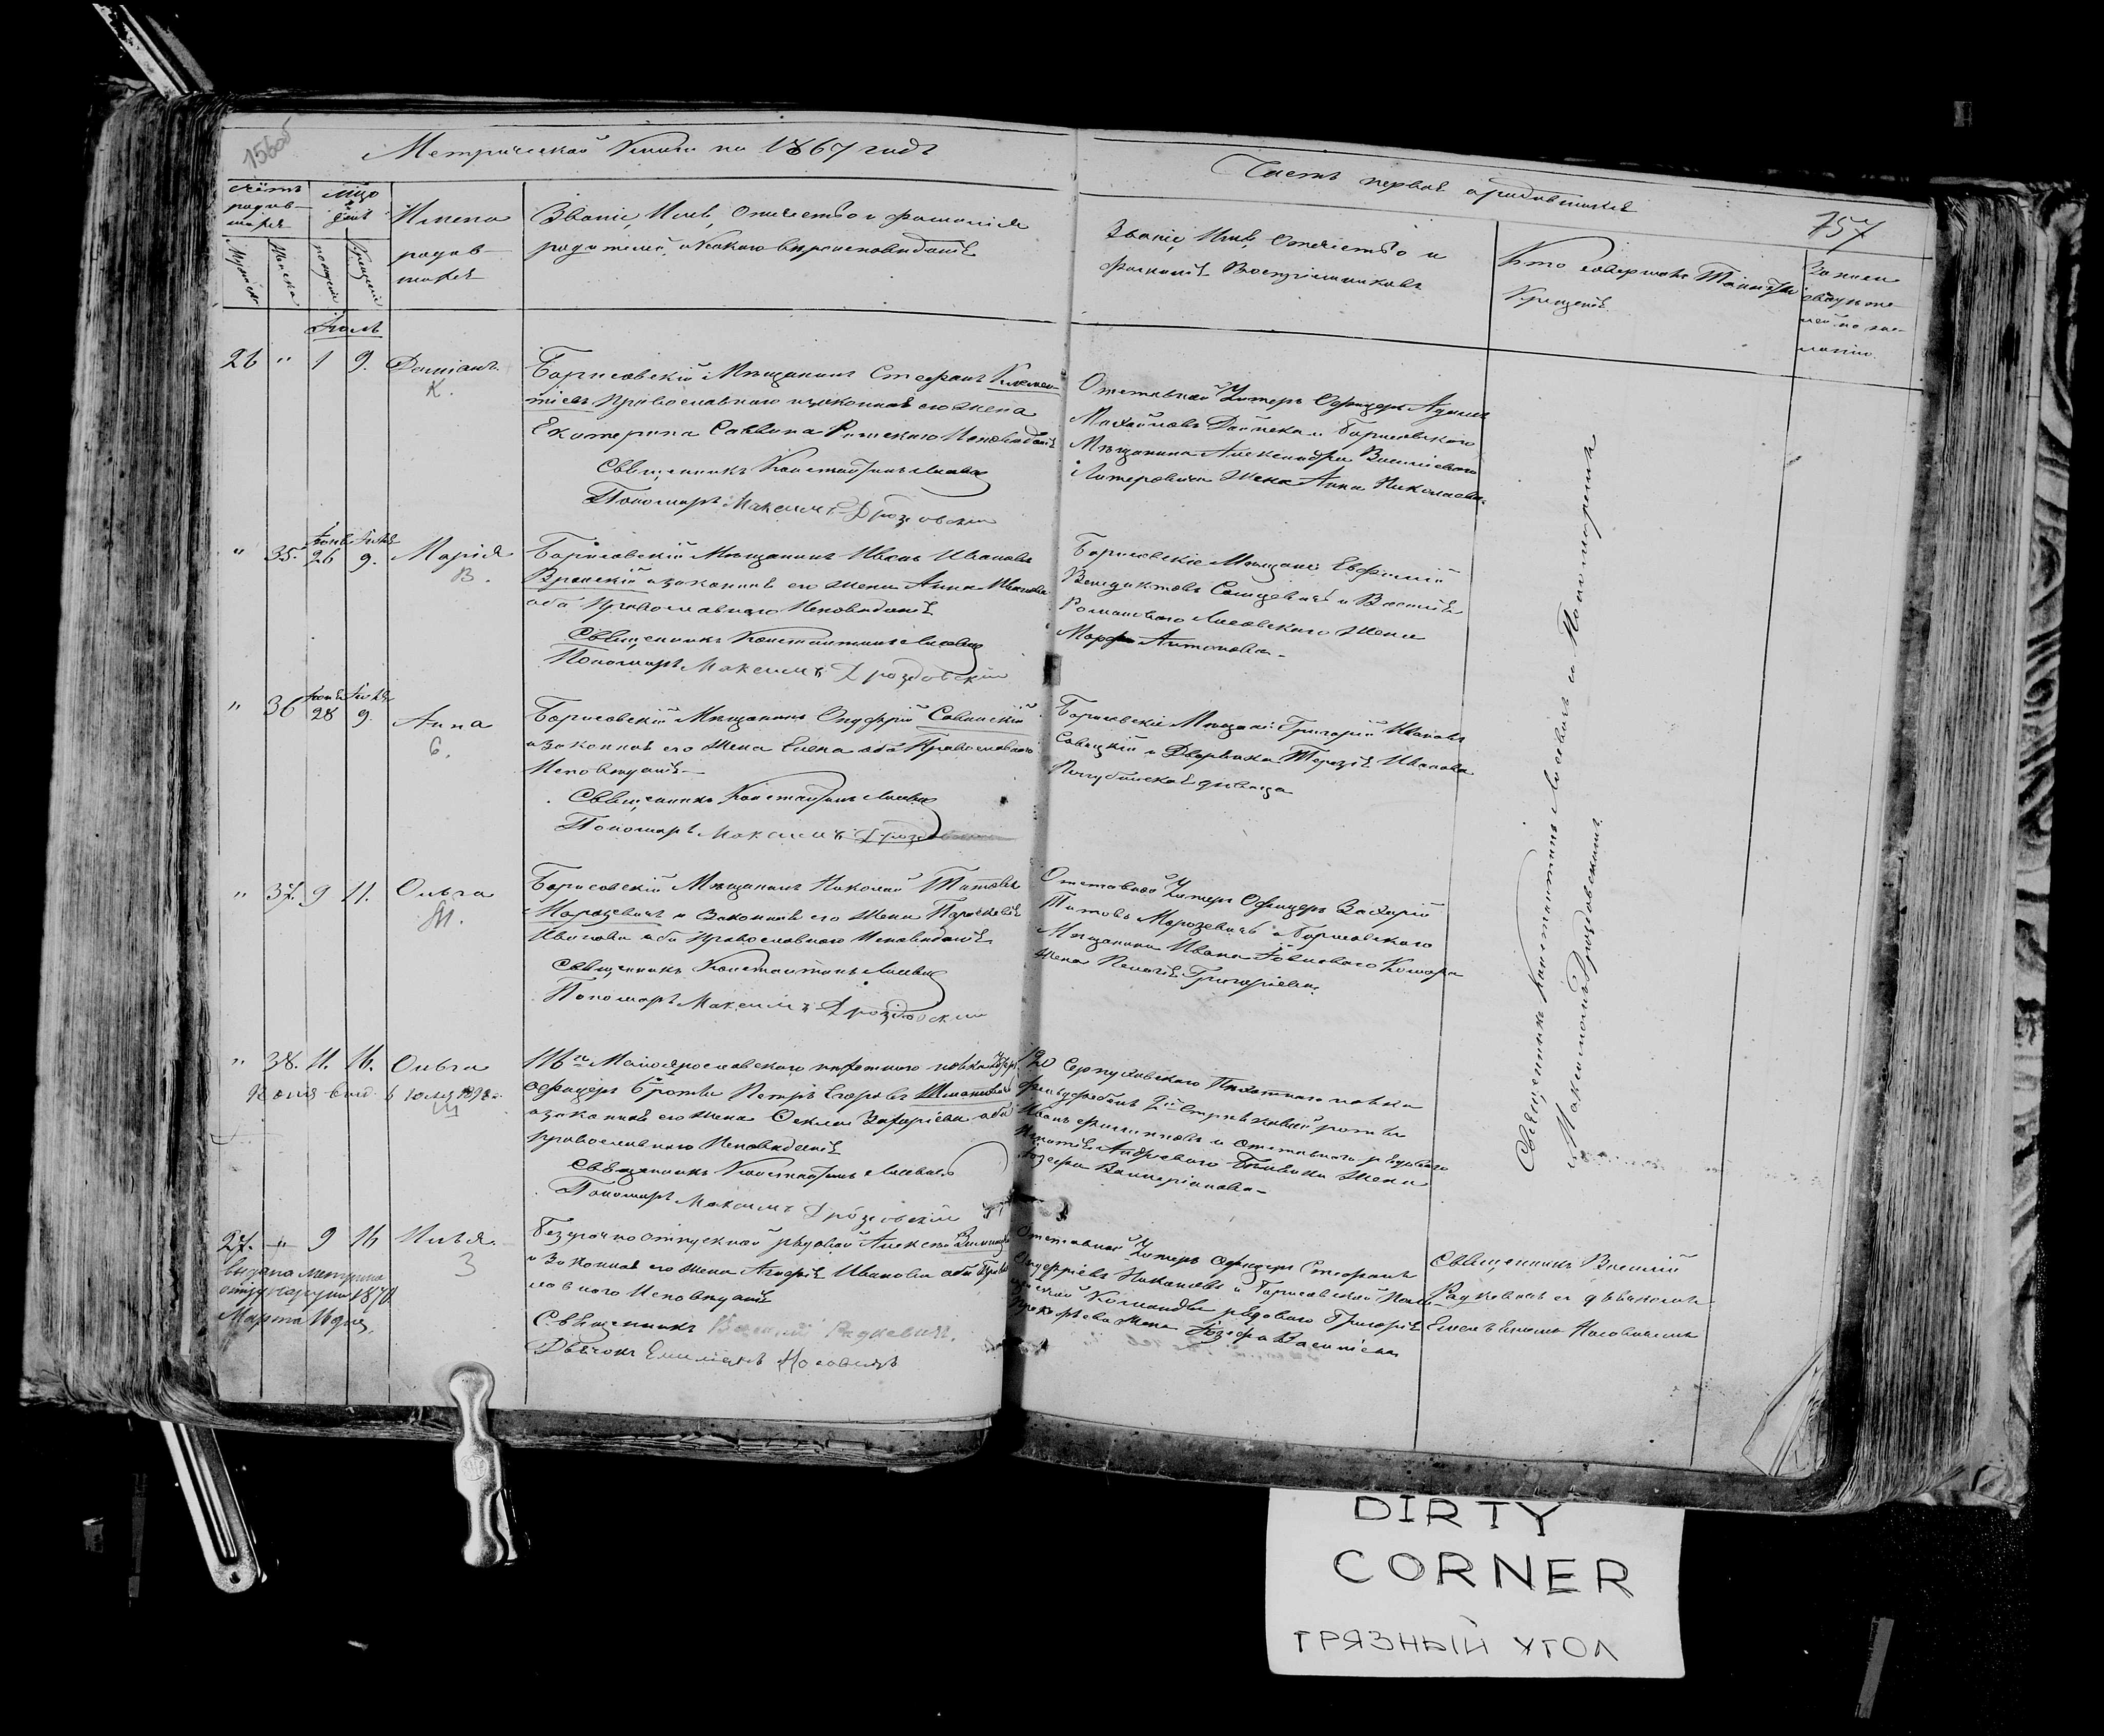 156об
Метрической Книги на 1867 годъ
Часть первая о родившихся
157
Счетъ родив-шихся
Мужеска
Женска
Мѣсяцъ и день
рожденія
Крещенія
Имена родив-шихся
Званіе, Имя, Отчество и фамилія
родителей, и какого вѣроисповѣданія
Званіе, Имя, Отчество и
фамилія Воспріемниковъ
Кто совершалъ Таинство
Крещенія
Іюль
26 " 1 9. Даміанъ.
К.
Борисовскій Мѣщанинъ Стефанъ
Православнаго и законная его жена
Екатерина Саввина Римскаго Исповѣданія
Священникъ Константинъ Лисевичъ
Пономарь Максимъ Дроздовскій
Отставной Унтеръ Офицеръ Адамъ
и Борисовскаго
Мѣщанина Александра Василіева
жена Анна Николаева
" 35. Іюня 26 Іюля 9. Марія
В.
Борисовскій Мѣщанинъ Иванъ Ивановъ
Вронскій и законная его жена Анна Иванова
оба Православнаго Исповѣданія
Священникъ Константинъ Лисевичъ
Пономарь Максимъ Дроздовскій
Борисовскіе Мѣщане: Евфимій
Венедиктовъ и Василія
Романова Лисовскаго жена
Марфа Антонова
" 36 Іюня 28 Іюля 9. Анна
С.
Борисовскій Мѣщанинъ Онуфрій Савинскій
и законная его жена Елена оба Православнаго
Исповѣданія
Священникъ Константинъ Лисевичъ
Пономарь Максимъ Дроздовскій
Борисовскіе Мѣщане: Григорій Ивановъ
Савицкій и Дворянка Терезія Иванова
дѣвица
" 37. 9 11. Ольга
М.
Борисовскій Мѣщанинъ Николай Титовъ
Марозевичъ и Законная его жена Параскевія
Иванова оба Православнаго Исповѣданія
Священникъ Константинъ Лисевичъ
Пономарь Максимъ Дроздовскій
Отставной Унтеръ Офицеръ Захарій
Титовъ Марозевичъ и Борисовскаго
Мѣщанина Ивана Комара
жена Пелагія Григоріева
" 38. 11. 16. Ольга
Копія выд.
Ш
116го Малоярославскаго пѣхотнаго полка Унтеръ
офицеръ 6й роты Петръ Егоровъ
и законная его жена Фекла Захаріева оба
православнаго Исповѣданія
Священникъ Константинъ Лисевичъ
Пономарь Максимъ Дроздовскій
120 Серпуховскаго Пѣхотнаго полка
Фельдфебель 2й Стрѣлковой роты
Иванъ Филипповъ и отставнаго рядоваго
Игнатія Андреева жена
Іозефа Валеріанова
27. " 9 16 Илья
З
Выдана метрика
1878
Марта 16 дня.
Безсрочно отпускной рядовой Алексей
и Законная его жена Агафія Иванова оба Право-
славнаго Исповѣданія
Священникъ Василій Радкевичъ.
Дьячокъ Емельянъ Носовичъ
Отставной Унтеръ Офицеръ Стефанъ
Онуфріевъ и Борисовской
Команды рядоваго Григорія
Прокофьева жена Іозефа Василіева
Священникъ Василій
Радкевичъ съ дьячкомъ
Емельяномъ Носовичемъ
Священникъ Константинъ Лисевичъ съ Пономаремъ
Максимомъ Дроздовскимъ
DIRTY
CORNER
ГРЯЗНЫЙ УГОЛ